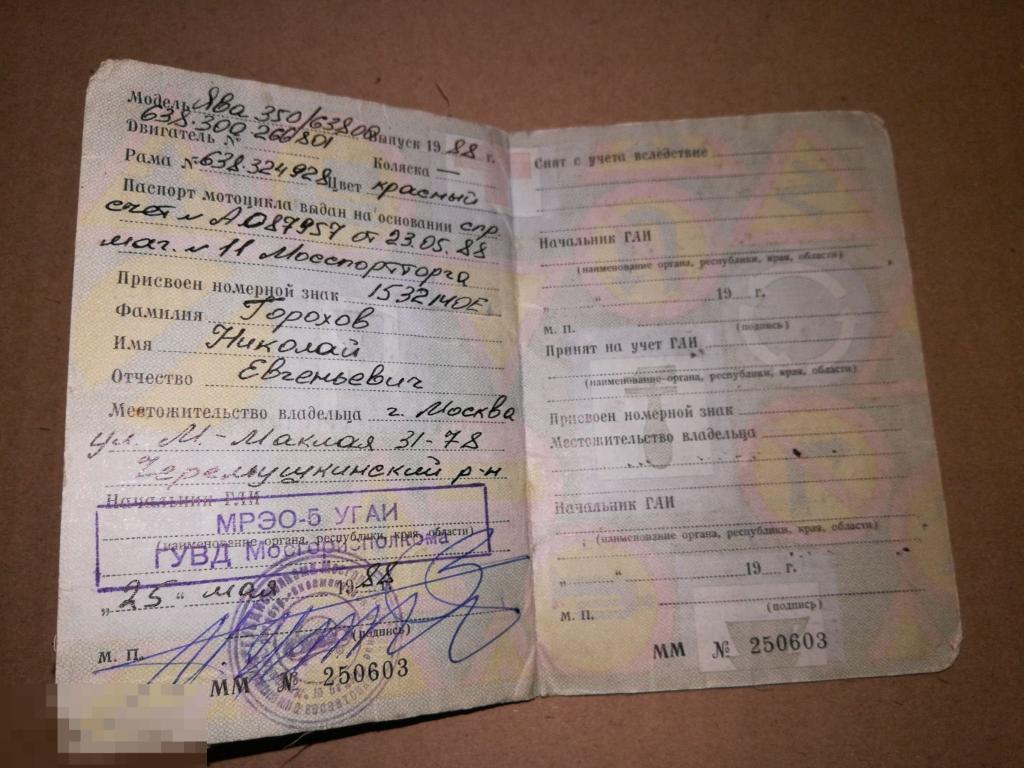 Модель Ява 350/638-00 Выпуск 1988 г.
Двигатель № 638.300 266801
Коляска —
Рама № 638.324928 Цвет красный
Паспорт мотоцикла выдан на основании спр.
счет № А087957 от 23.05.88
маг. № 11 Мосспортторга
Присвоен номерной знак 1532 МОЕ
Фамилия Горохов
Имя Николай
Отчество Евгеньевич
Местожительство владельца г. Москва
ул. М.-Маклая 31-78
Черемушкинский р-н
Начальник ГАИ
МРЭО-5 УГАИ
(наименование органа, республики, края, области)
ГУВД Мосгорисполкома
„25" мая 1988 г.
(подпись)
М. П.
ММ № 250603
Снят с учета вследствие
Начальник ГАИ
(наименование органа, республики, края, области)
„ " 19 г.
М. П. (подпись)
Принят на учет ГАИ
(наименование органа, республики, края, области)
Присвоен номерной знак
Местожительство владельца
Начальник ГАИ
(наименование органа, республики, края, области)
„ " 19 г.
М. П. (подпись)
ММ № 250603